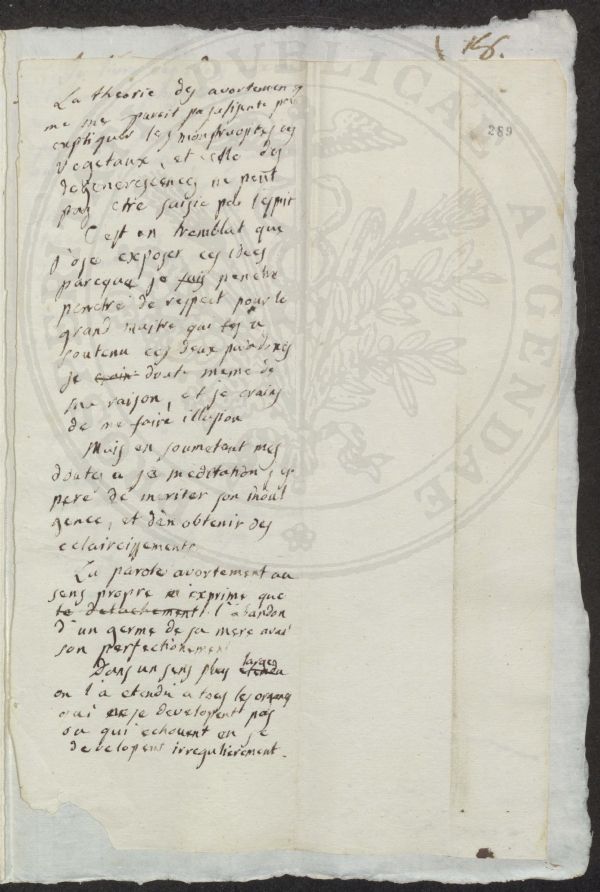 166.
289
La theorie des avortemens
me me pareit pas sufisante pour
expliquer les monstruosites des
vegetaux, et celle des
degenerescences ne peut
pas etre saisie par l'esprit
C'est en tremblat que
j'ose exposer ces idees
parceque je suis penetre
penetré de respect pour le
grand maitre qui les a
soutenu ces deux paradoxes
je crain doute meme de
ma raison, et je crains
de me faire illusion
Mais en soumetant mes
doutes a sa meditation j'es
pere de meriter son indul
gence, et d'en obtenir des
eclaircissements
La parole avortement au
sens propre n'exprime que
le detachement l'abandon
d'un germe de sa mere avant
son perfectionement
Dans un sens plus etendu larges
on l'a etendu a tous les organes
qui ne se developent pas
ou qui echouent en se
developant irregulierement.
PVBLICAE
AVGENDAE